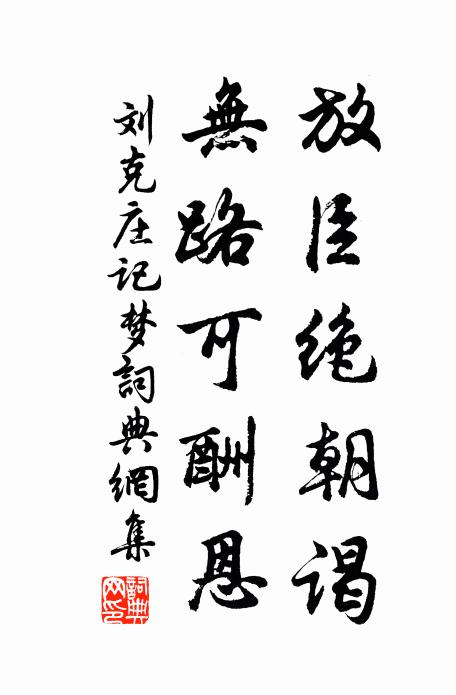 放臣絶朝謁
無路可酬恩
刘克庄记梦詞典網集
詞典网印